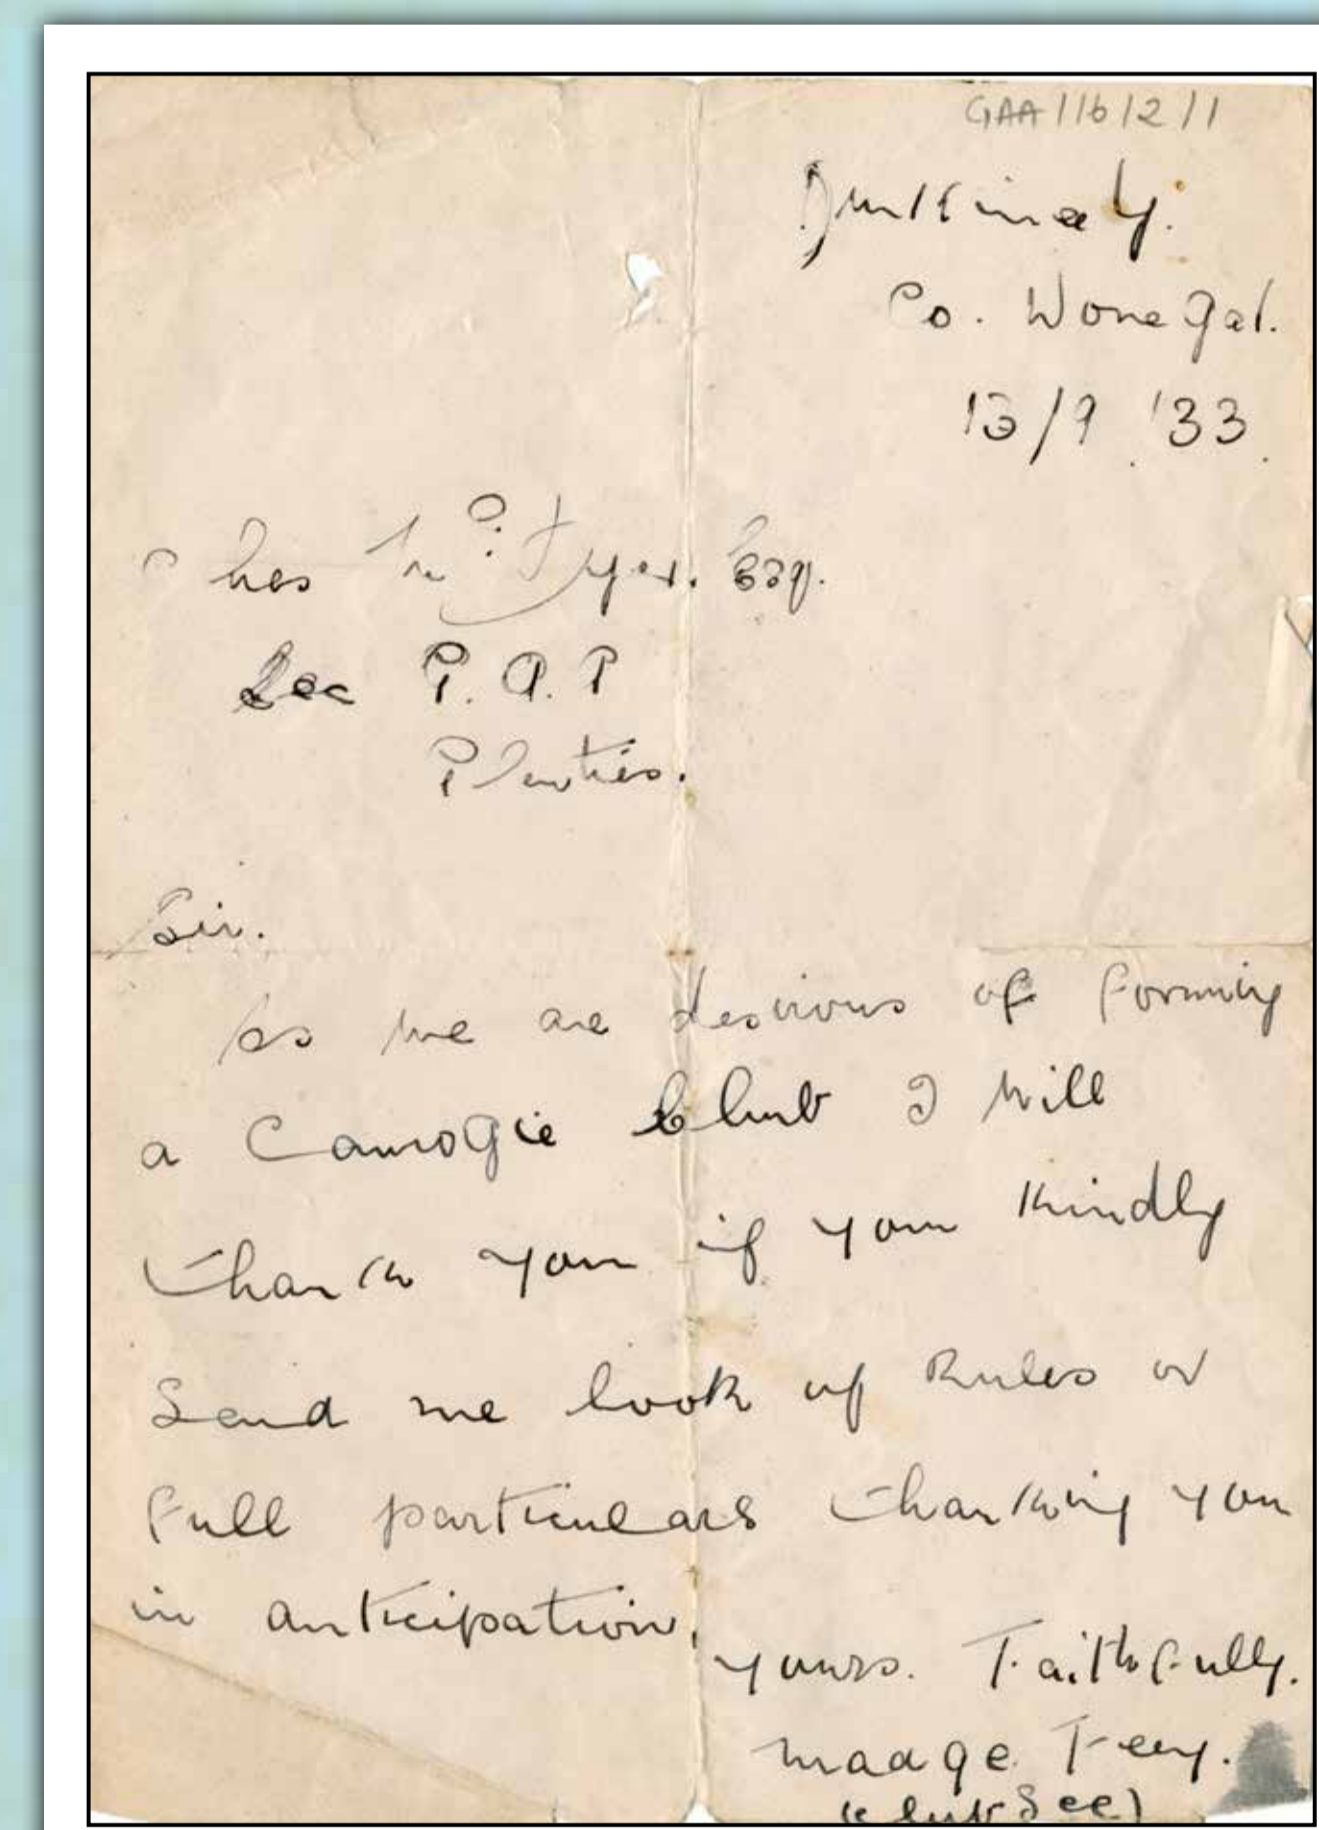 GAA/16/2/1
Co. Donegal.
13/9 '33.
Chas Esq.
Sec
Sir.
As we are desirous of forming
a Camogie Club I will
thank you if you kindly
Send me book of Rules or
full particulars thanking you
in anticipation.
yours. Faithfully.
Madge
(Club Sec)